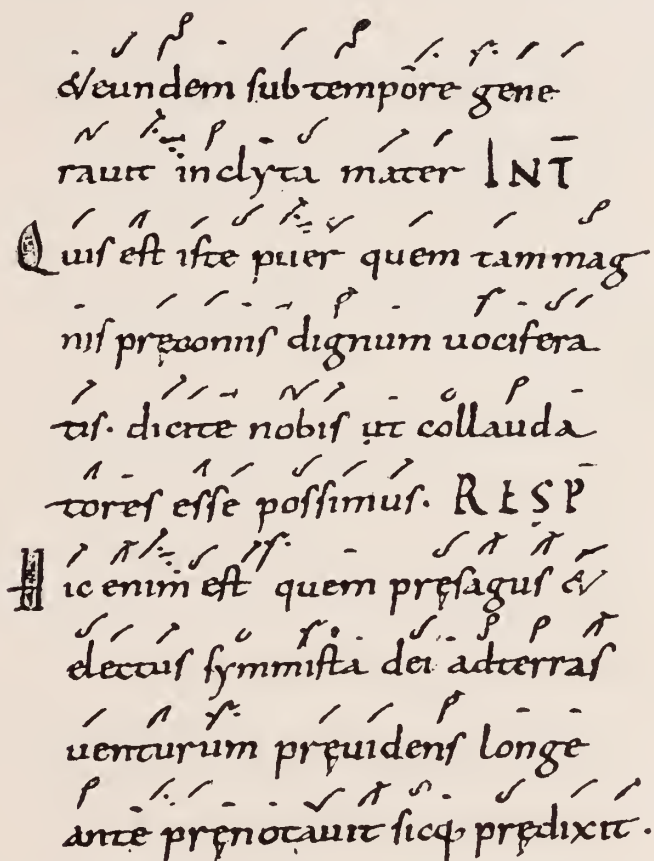 &eundem sub tempore gene
rauit inclyta mater INT̅
Quis est iste puer quem tam mag
nis pręconiis dignum uocifera
tis. dicite nobis ut collauda
tores esse possimus. RESP̅
Hic enim est quem pręsagus &
electus symmista dei ad terras
uenturum pręuidens longe
ante pręnotauit sicq; prędixit.